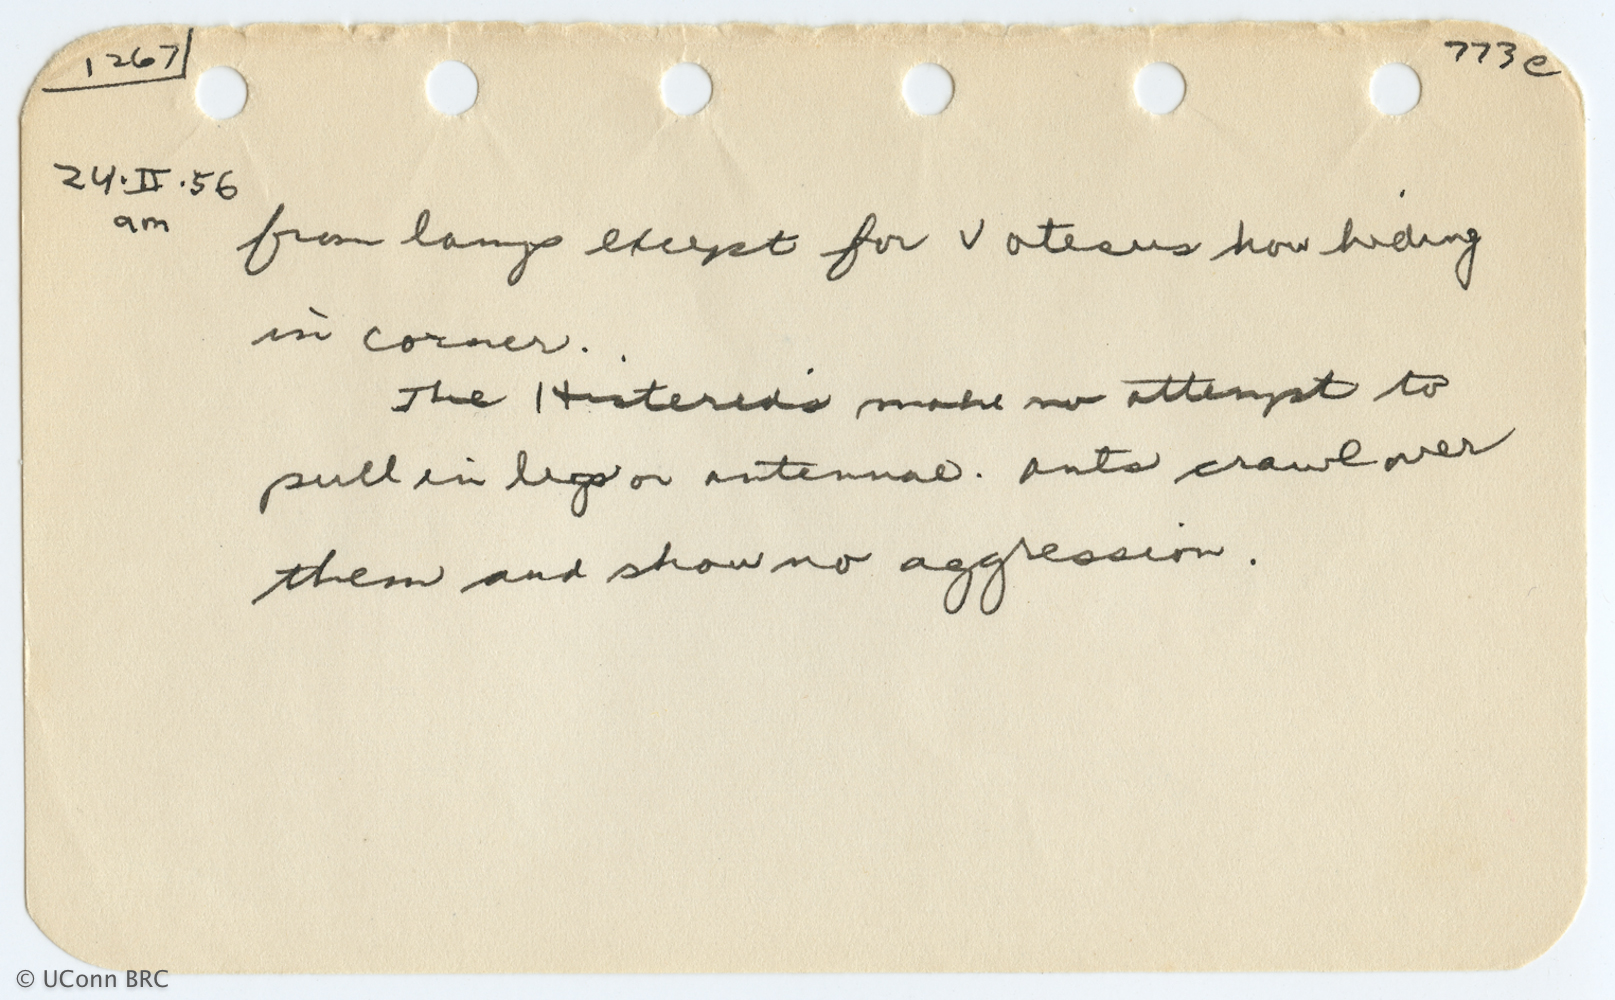 1267
773e
24·II·56
am
from lamp except for Votesus now hiding
in corner.
The Histerids make no attempt to
pull in legs or antennae. Ants crawl over
them and show no aggression.
© UConn BRC